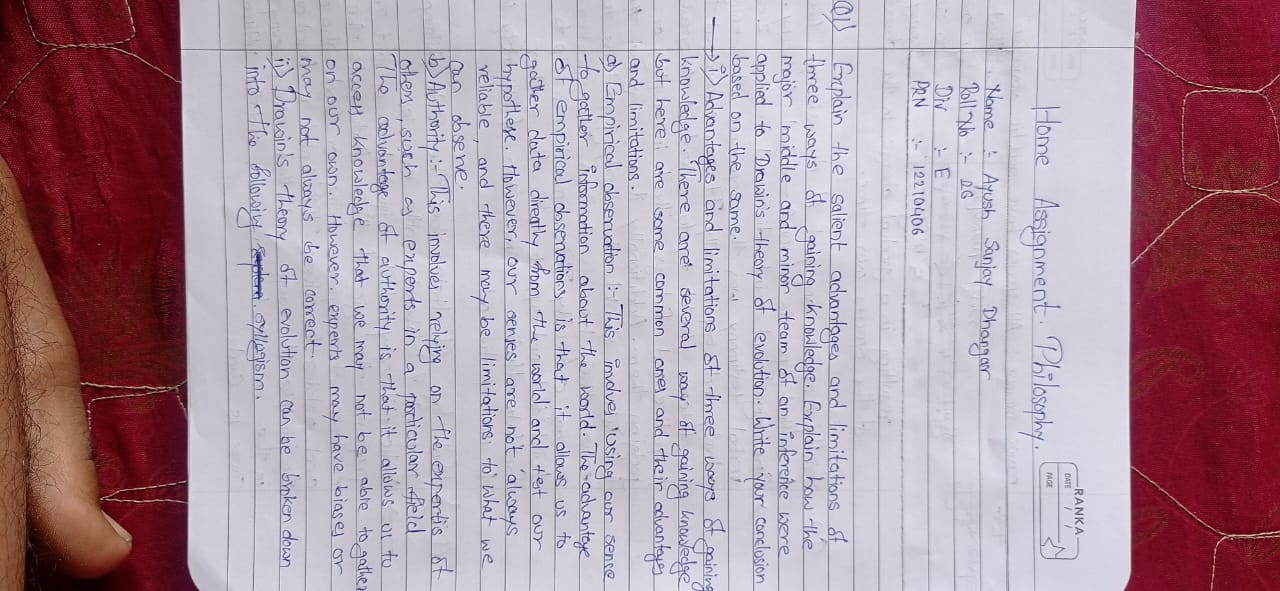 RANKA
DATE / /
PAGE
Home Assignment. Philosophy.
Name :- Ayush Sanjay Dhangar
Roll No :- 26
Div :- E
PRN :- 12210406
Q1) Explain the salient advantages and limitations of
three ways of gaining knowledge. Explain how the
major middle and minor team of an inference were
applied to Drawin's theory of evolution. Write your conclusion
based on the same.
→ i) Advantages and limitations of three ways of gaining
knowledge. There are several way of gaining knowledge
but here are some common ones and their advantages
and limitations.
a) Empirical observation :- This involves using our sense
to gather information about the world. The advantage
of empirical observations is that it allows us to
gather data directly from the world and test our
hypothese. However, our senses are not always
reliable, and there may be limitations to what we
can observe.
b) Authority :- This involves relying on the expertis of
others, such as experts in a particular field
The advantage of authority is that it allows us to
access knowledge that we may not be able to gather
on our own. However experts may have biases or
may not always be correct.
ii) Drawin's theory of evolution can be broken down
into the following syllogism.